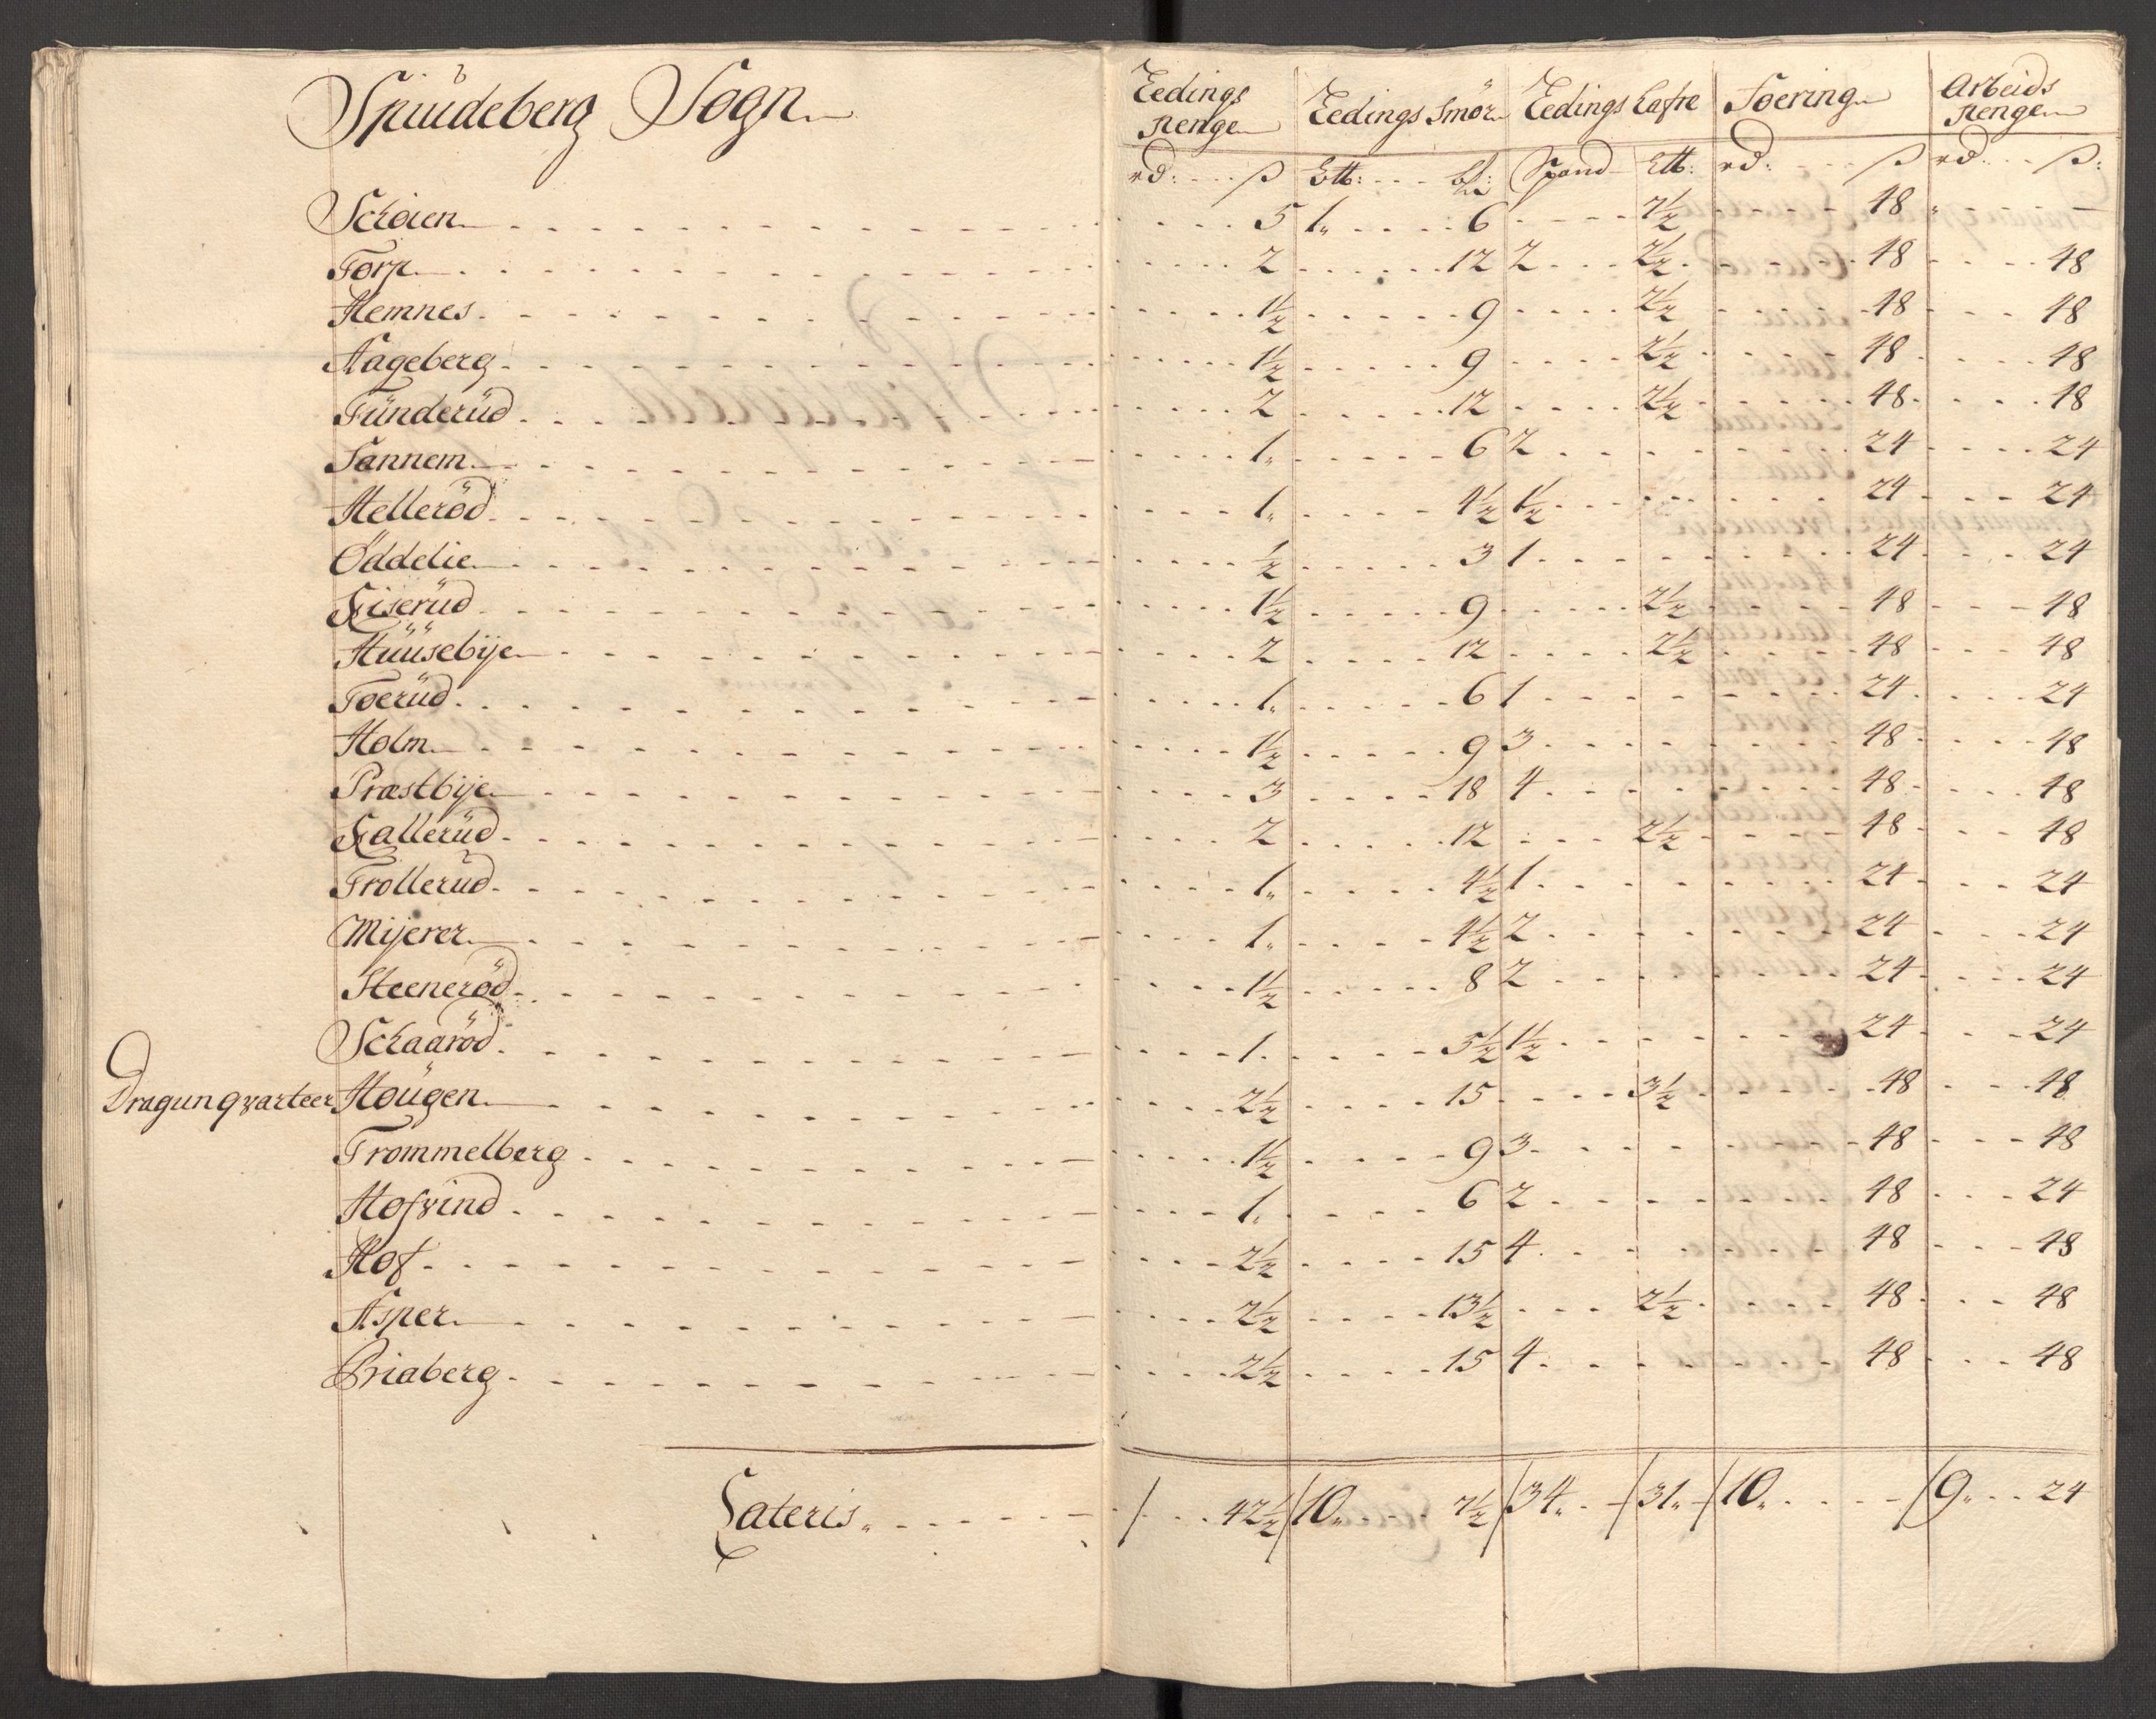 Spüudeberg Sogn
Leedings Penge | Leedings Smör | Leedings Hafre | Foering | Arbeids Penge
rd: ß | Btt: btt: | Spand Ltt: | rd: ß | rd: ß:
Schøien 5 | 1 6 | 7½ | 48 | —
Torp 2 | 12 | 2 2½ | 48 | 48
Hemnes 1½ | 9 | 2½ | 48 | 48
Hageberg 1½ | 9 | 2½ | 48 | 48
Tünderüd 2 | 12 | 2½ | 48 | 48
Sannem 1 | 6 | 2 | 24 | 24
Helleröd 1 | 4½ | 1½ | 24 | 24
Oddelie ½ | 3 | 1 | 24 | 24
Liserüd 1½ | 9 | 2½ | 48 | 48
Hüüsebije 2 | 12 | 2½ | 48 | 48
Toerüd 1 | 6 | 1 | 24 | 24
Holm 1½ | 9 | 3 | 48 | 48
Præstbije 3 | 18 | 4 | 48 | 48
Lallerüd 2 | 12 | 2½ | 48 | 48
Trollerüd 1 | 4½ | 1 | 24 | 24
Mijerer 1 | 4½ | 2 | 24 | 24
Steeneröd 1½ | 8 | 2 | 24 | 24
Schaaröd 1 | 5½ | 1½ | 24 | 24
Dragunqvarteer Hougen 2½ | 15 | 3½ | 48 | 48
Trommelberg 1½ | 9 | 3 | 48 | 48
Hofvind 1 | 6 | 2 | 48 | 24
Hof 2½ | 15 | 4 | 48 | 48
Asper 2½ | 13½ | 2½ | 48 | 48
Briaberg 2½ | 15 | 4 | 48 | 48
Lateris 42½ | 10 7½ | 34 31 | 10 | 9 24